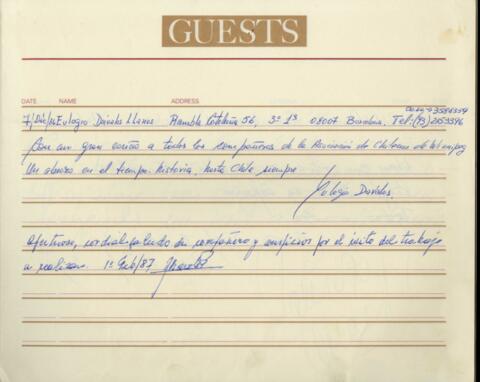 GUESTS
DATE NAME ADDRESS
7/Dic/86 Eulogio Dávalos Llanos Rambla Cataluña 56, 3º 1ª 08007 Barcelona. Tel: (93)
Con un gran cariño a todos los compañeros de la Asociación de Chilenos de Winnipeg
Un abrazo en el tiempo historia, hasta Chile siempre
Eulogio Dávalos.
Afectuoso, cordial saludo de compañero y auspicios por el éxito del trabajo
a realizar. 1º Feb/87